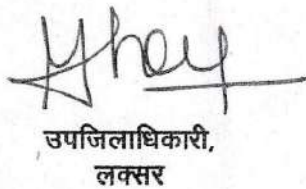 उपजिलाधिकारी,
लक्सर